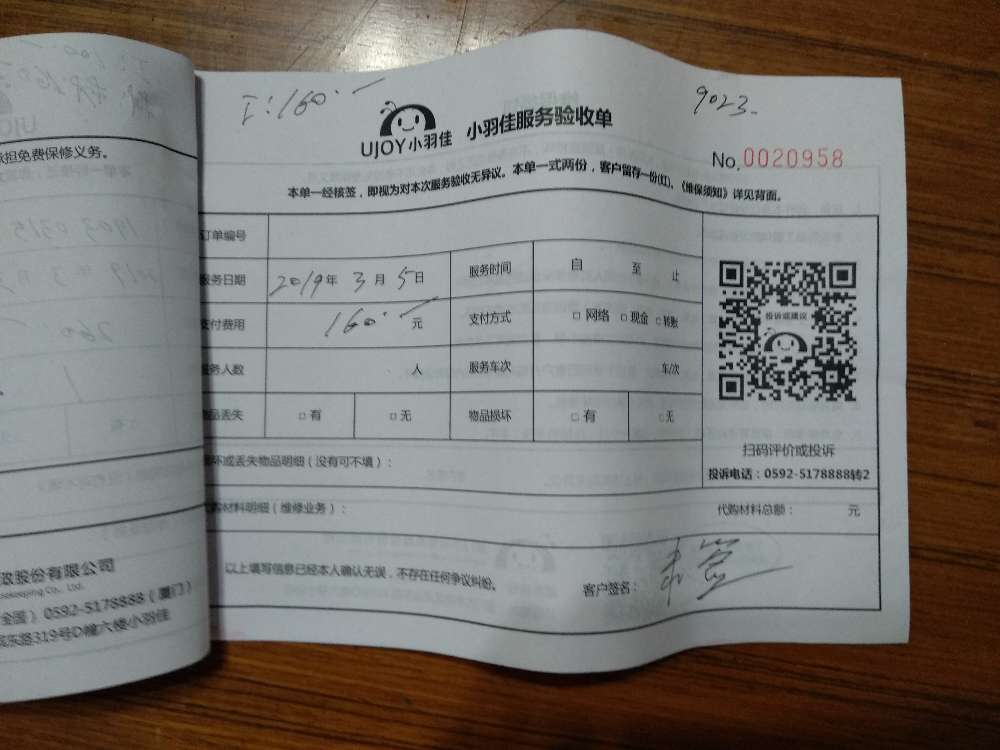 工:160.-
9023-
UJOY小羽佳 小羽佳服务验收单
No. 0020958
本单一经核签，即视为对本次服务验收无异议。本单一式两份，客户留存一份(红)，《维保须知》详见背面。
订单编号
服务日期 2019年 3月 5日 服务时间 自 至 止
支付费用 160.- 元 支付方式 □ 网络 □ 现金 □ 转账
服务人数 人 服务车次 车次
物品丢失 □ 有 □ 无 物品损坏 □ 有 □ 无
投诉或建议
扫码评价或投诉
投诉电话：0592-5178888转2
损坏或丢失物品明细（没有可不填）：
代购材料明细（维修业务）： 代购材料总额： 元
以上填写信息已经本人确认无误，不存在任何争议纠纷。 客户签名：
承担免费保修义务。
19030315
2019年3月
260
政股份有限公司
Co., Ltd.
全国）0592-5178888（厦门）
东路319号D幢六楼小羽佳